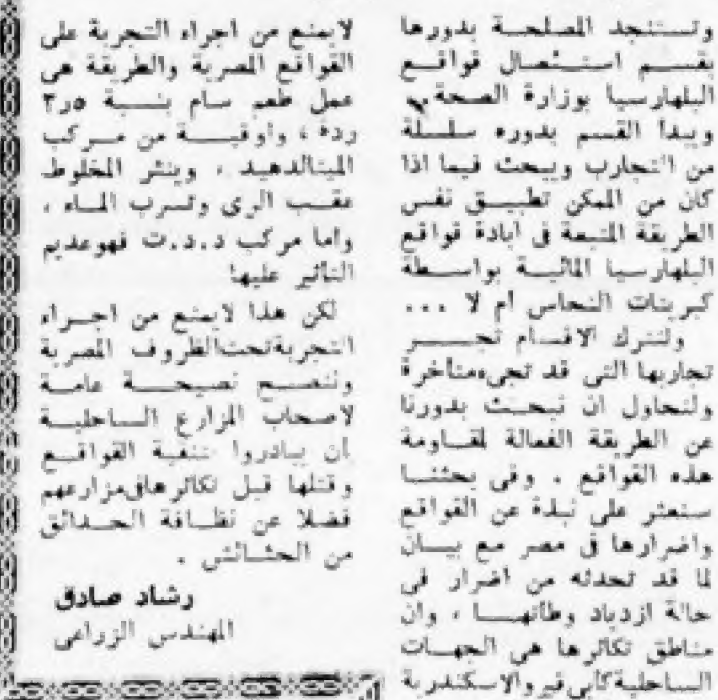 وتستنجد المصلحة بدورها
بقسم استئصال قواقع
البلهارسيا بوزارة الصحة
ويبدأ القسم بدوره سلسلة
من التجارب ويبحث فيما اذا
كان من الممكن تطبيق نفس
الطريقة المتبعة فى ابادة قواقع
البلهارسيا المائية بواسطة
كبريتات النحاس أم لا ...
ولنترك الاقسام تجسر
تجاربها التى قد تجىء متأخرة
ولنحاول ان نبحث بدورنا
عن الطريقة الفعالة لمقاومة
هذه القواقع . وفى بحثنا
سنعثر على نبذة عن القواقع
واضرارها فى مصر مع بيان
لما قد تحدثه من اضرار فى
حالة ازدياد وطأتهـا ، وان
مناطق تكاثرها هى الجهات
الساحلية كأبى قير والاسكندرية
لايمنع من اجراء التجربة على
القواقع المصرية والطريقة هى
عمل طعم سام بنسبة ٣٫٥
ردة ، وأوقية من مركب
الميتالدهيد ، وينثر المخلوط
عقب الرى وتسرب الماء ،
واما مركب د.د.ت فهو عديم
التأثير عليها
لكن هذا لايمنع من اجراء
التجربة تحت الظروف المصرية
وننصح نصيحة عامة
لاصحاب المزارع الساحلية
بأن يبادروا بتنقية القواقع
وقتلها قبل تكاثرها فى مزارعهم
فضلا عن نظافة الحدائق
من الحشائش .
رشاد صادق
المهندس الزراعى